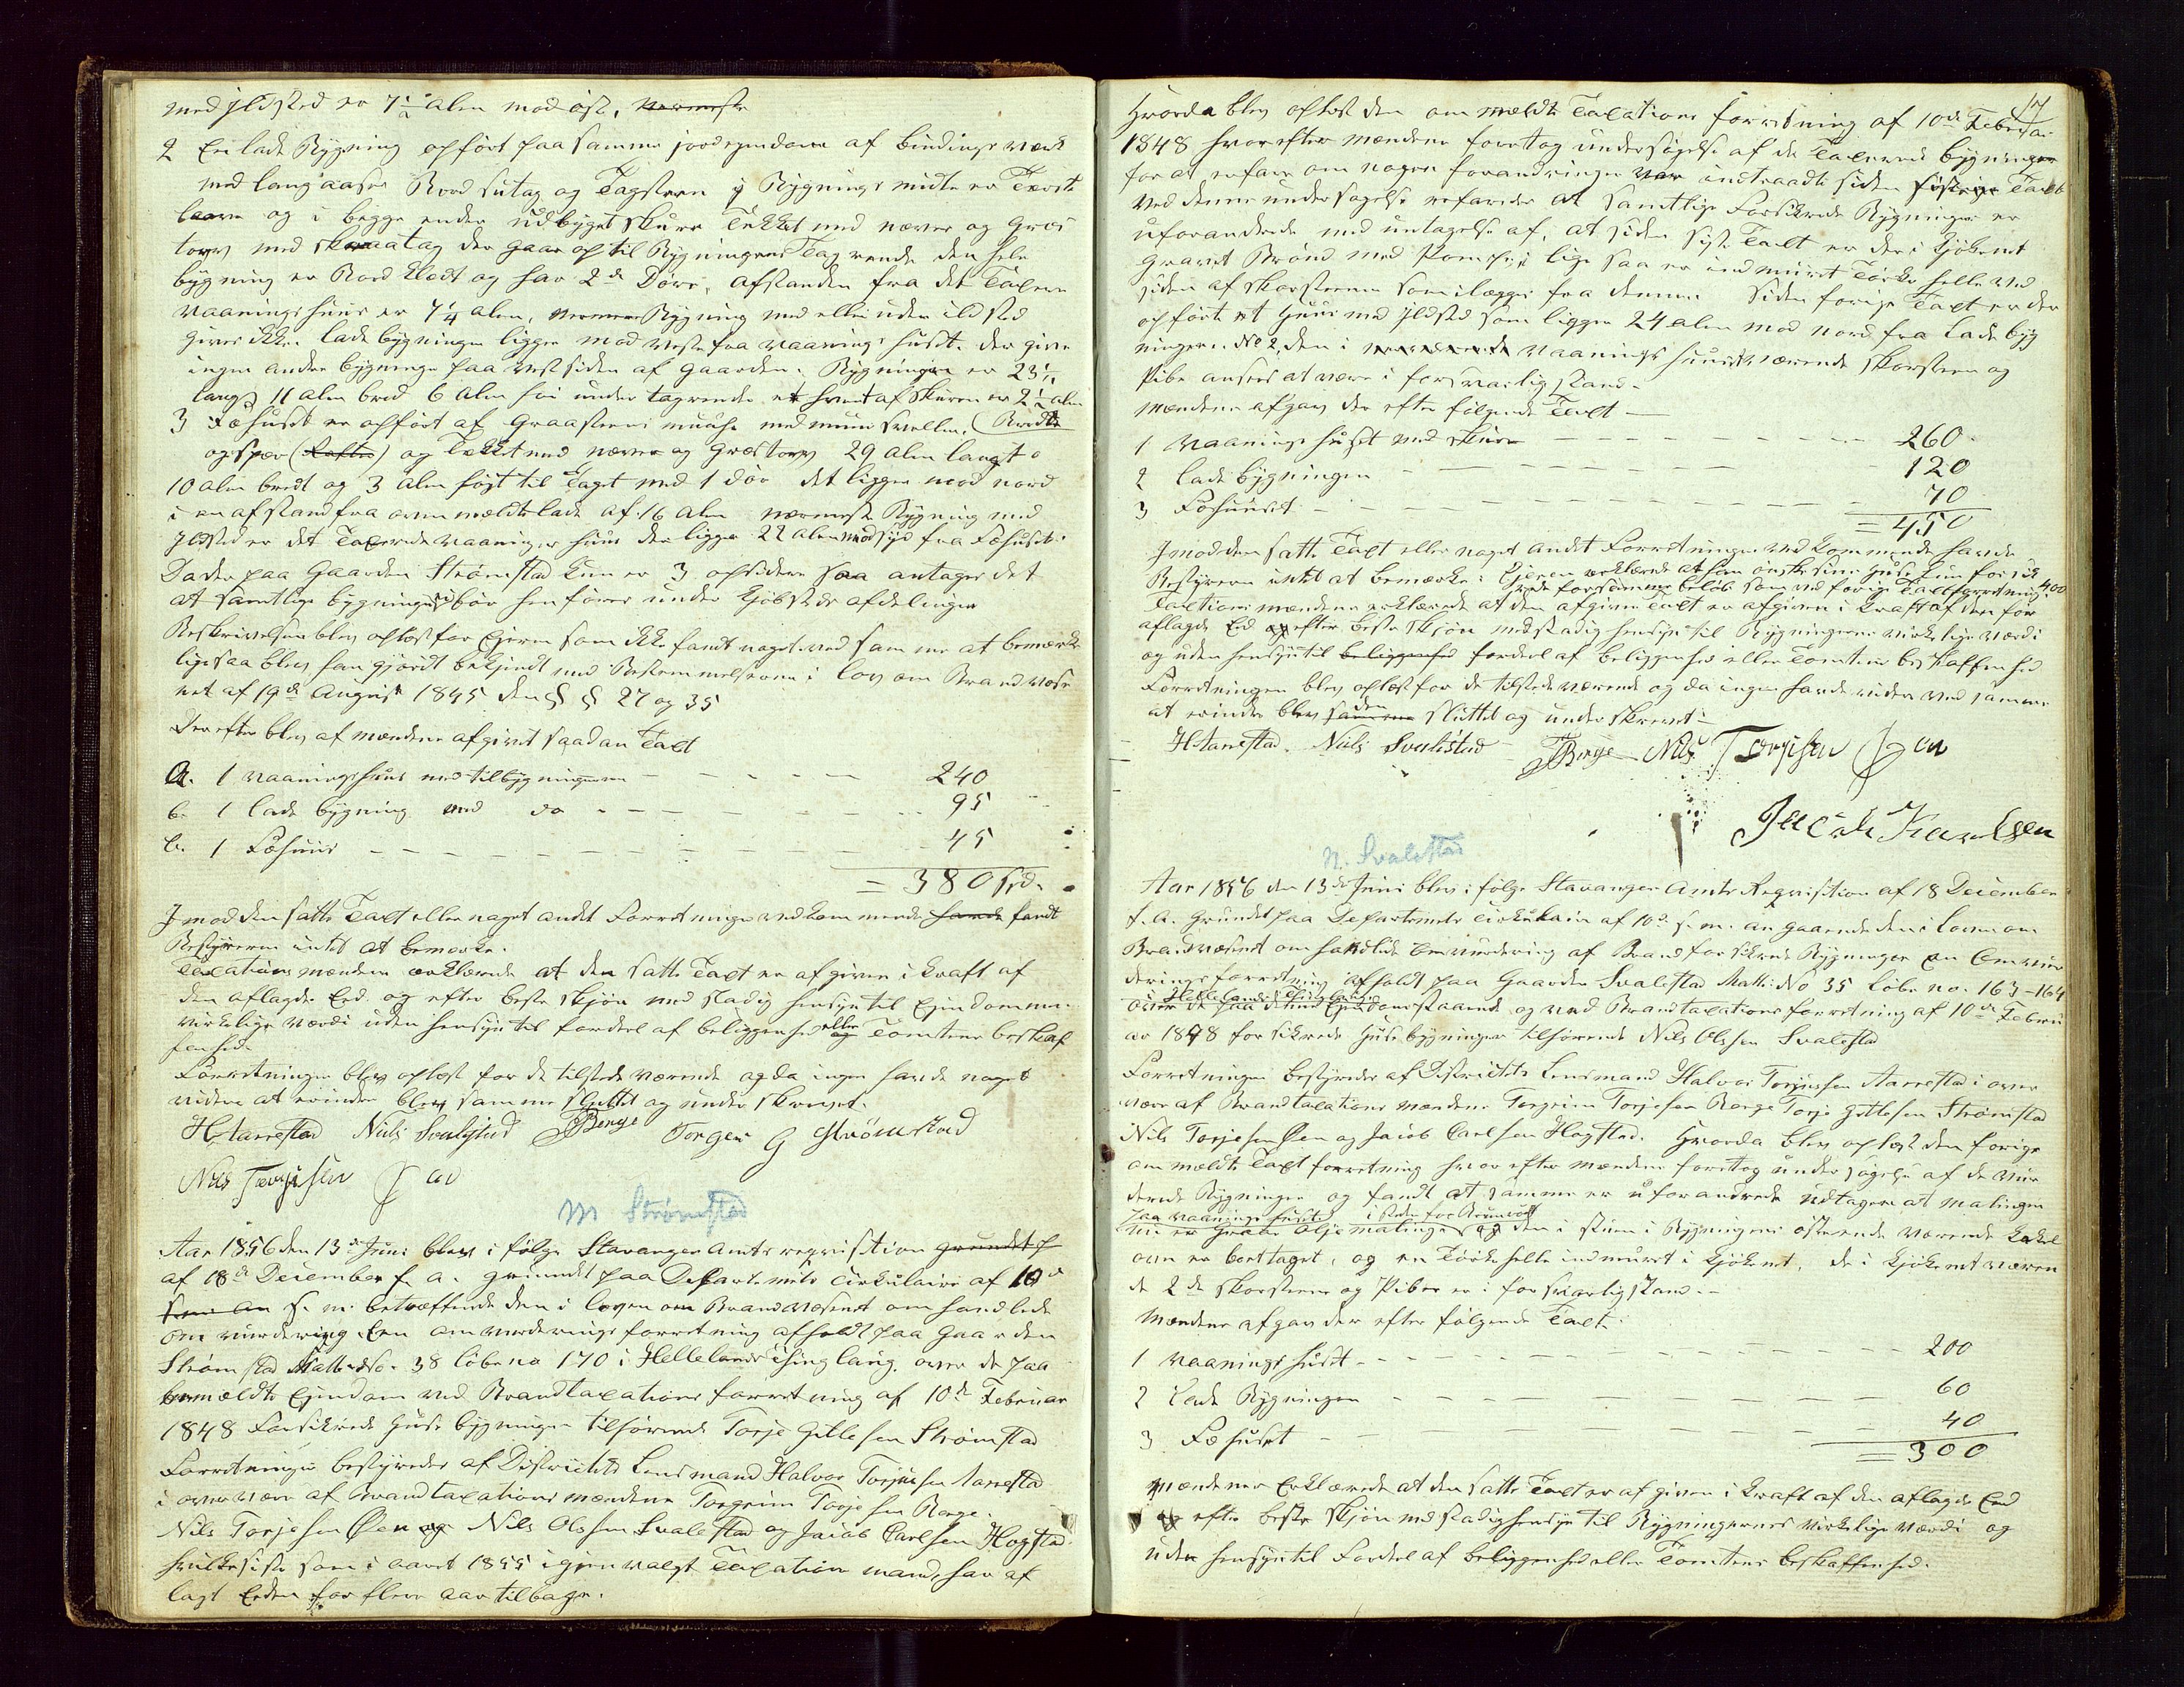 med Ildsted er 7 1/2 Alen mod øst, nærmeste
2 En lade Bygning opført paa samme jordegendom af Bindings værk
med lang aaser Bord sutag og Tagsteen i Bygnings midte er Tærske
laave og i begge ender udbyget skure Tækket med næver og Græs
torv med skraatag der gaar op til Bygningens Tag rende den hele
bygning er Bord Klædt og har 2de Døre, afstanden fra det Taxerede
Vaaningshuus er 7 1/4 Alen, nærmere Bygning med eller uden ildsted
gives ikke. lade bygningen ligger mod vest fra vaanings huset. der gives
ingen andre bygninger paa vestsiden af Gaarden. Bygningen er 23 1/2
lang 11 Alen bred 6 Alen høi under tagrenden et hvert af skurene er 2 1/2 Alen
3 Fæhuset er opført af Graasteens muur med muur sviller, Bredde
og sper (Rafter) og Tækket med næver og Græstorv 29 Alen langt
10 Alen bredt og 3 Alen høgt til Taget med 1 dør det ligger mod nord
i en afstand fra ovenmældte lade af 16 Alen nærmeste Bygning med
Ildsted er det Taxerede Vaanings huus der ligger 22 Alen mod syd fra Fæhuset.
Da der paa Gaarden Strømstad kun er 3 opsiddere saa antages det
at samtlige bygninger bør henføres under Kjøbsteds afdelingen
Beskrivelsen blev oplæst for Ejeren som ikke fandt noget ved samme at bemærke
ligesaa blev han gjordt bekjendt med Bestemmelserne i lov om Brand væse
net af 19de August 1845 den §§ 27 og 35
Derefter blev af mændene afgivet saadan Taxt
a. 1 Vaaningshuus med tilbygningerne — — — — 240
b. 1 lade bygning med do — — — — 95
c. 1 Fæhuus — — — — 45
= 380 spd.
Imod den satte Taxt eller noget andet Forretningen vedkommende havde fandt
Bestyreren intet at bemærke.
Taxations mændene erklærede at den satte Taxt er afgiven i kraft af
den aflagde Eed og efter beste skjøn med stadig hensyn til Ejendommens
virkelige værdi uden hensyn til fordeel af beliggenhed eller Tomtens beskaf
fenhed.
Forretningen blev oplæst for de tilstede værende og da ingen havde noget
videre at erindre blev samme sluttet og under skrevet.
H Aarrestad Niels Svalestad TTBerge Torger G Strømstad
Nils Torgisen Øen
M Strømstad
Aar 1856 den 13de Juni blev i følge Stavanger Amts reqvisition grundet p
af 18de December f. a. grundet paa Departemets Cirkulaire af 10de
s. m. betræffende den i loven om Brandvæsenet om handlede
om vurdering Een omvurderings forretning afholdt paa Gaarden
Strømstad Matr. No. 38 løbe no 170 i Hellelands thinglaug over de paa
bemældte Ejendom ved Brandtaxations forretning af 10de Februar
1848 Forsikrede Huse bygninger tilhørende Torje Gitlesen Strømstad
Forretningen bestyredes af Districtets Lensmand Halvor Torjusen Aarrestad
i overvær af Brandtaxations mændene Torgrim Torjesen Berge.
Nils Torjesen Øen og Nils Olssen Svalestad og Jacob Carlsen Hogstad
hvilke sidste som i aaret 1855 igjen valgt Taxations mand, har af
lagt Eeden for flere aar tilbage.
17
Hvorda blev oplæst den om mældte Taxations forretning af 10de Februar
1848 hvorefter mændene foretog undersøgelse af de Taxerede bygninger
for at erfare om nogen forandringer var indtraadt siden sidste Taxt
Ved denne undersøgelse erfaredes at samtlige Forsikrede Bygninger er
uforandrede med untagelse af, at siden sidste Taxt er der i Kjøkenet
gravet Brønd med Pompe, lige saa er indmuret Tørke helle ved
siden af skorsteenen som ilægges fra denne. Siden forige Taxt er der
opført et Huus med Ildsted som ligger 24 Alen mod nord fra lade byg
ningen No 2, den i Vaanings huuset værende skorsteen og
Pibe ansees at være i forsvarlig stand.
Mændene afgav der efter følgende Taxt —
1 Vaanings huset med skure — — — — 260
2 lade bygningen — — — — 120
3 Fæhuuset — — — — 70
= 450
Imod den satte Taxt eller noget andet Forretningen vedkommende havde
Bestyreren intet at bemærke: Ejeren erklærede at han ønsker sine huse kun forsik
rede for samme beløb som ved forige Taxtforretning 400
Taxtions mændene erklærede at den afgivne Taxt er afgiven i kraft af den før
aflagde Eed og efter beste skjøn med stadig hensyn til Bygningernes virkelige værdi
og uden hensyn til beliggenhed fordeel af beliggenhed eller Tomtens beskaffenhed
Forretningen blev oplæst for de tilstede værende og da ingen havde videre ved samme
at erindre blev den samme sluttet og under skrevet.
H Aarrestad. Niels Svalestad TTBerge Nils Torgisen Øen
Jacob Karlsen
N. Svalestad
Aar 1856 den 13de Juni blev i følge Stavanger Amts Reqvisition af 18 December
f. a. grundet paa Departemets Cirkulair af 10de s. m. an gaaende den i Loven om
Brandvæsenet om handlede omvurdering af Brandforsikrede Bygninger en Omvur
derings forretning afholdt paa Gaarden Svalestad Matr. No 35 Løbe no. 163-164
i Hellelands thinglaug
over de paa denne Ejendom staaende og ved Brandtaxations forretning af 10de Febru
ar 1848 forsikrede Huse bygninger tilhørende Nils Olssen Svalestad
Forretningen bestyredes af Districtets Lensmand Halvor Torjusen Aarrestad i over
vær af Brandtaxations mændene Torgrim Torjesen Berge Torje Gitlesen Strømstad
Nils Torjesen Øen og Jacob Carlsen Hogstad. Hvorda blev oplæst den forige
ommældte Taxt forretning hvor efter mændene foretog undersøgelse af de vur
derede Bygninger og fandt at samme er uforandrede udtagen at malingen
paa vaanings huset i steden for Brunrødt
nu er graae oljemaling og den i stuen i Bygningens østre ende værende kakel
ovn er borttaget, og en Tørkehelle indmuret i Kjøkenet, de i Kjøkenet væren
de 2de skorstene og Piber er i forsvarlig stand.—
Mændene afgav der efter følgende Taxt:
1 Vaanings huset — — — — 200
2 Lade Bygningen — — — — 60
3 Fæhuset — — — — 40
= 300
Mændene Erklærede at den satte Taxt er afgiven i kraft af den aflagde Eed
og efter beste skjøn med stadig hensyn til Bygningernes virkelige værdi og
uden hensyn til Fordeel af beliggenhed eller Tomtens beskaffenhed.